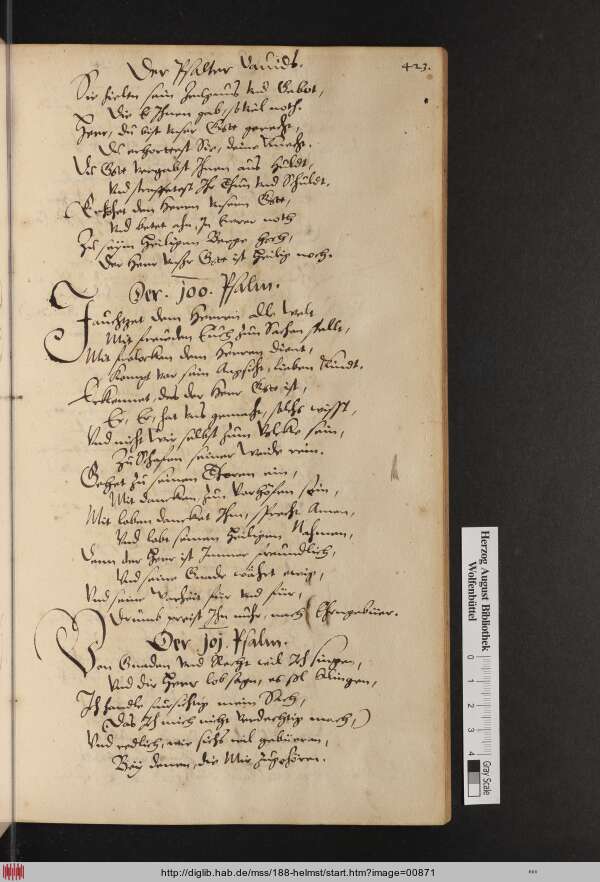 Der Psalter Dauids.
423.
Sie hielten sein Zeugnus vnd Gebot,
Die Er Ihnen gab,
Herr, du bist vnser Gott gerecht,
Du erhörtest Sie, deine Knecht.
Du Gott vergabst Ihnen aus Huldt,
Vnd straffetest Ihr Thun vnd Schuldt.
Erhöhet den Herrn vnsern Gott,
Vnd betet ahn, In noth
Zu seim Heiligen Berge hoch,
Der Herr vnser Gott ist Heilig noch.
Der. 100. Psalm.
Jauchtzet dem Herren alle Welt
Mit freuden Euch zun Sachen stellt,
Mit frolocken dem Herren dient,
Kompt vor sein Angesicht, lieben Kindt.
Erkennet, das der Herr Gott ist,
Er, Er, hat vns gemacht, solchs wisst,
Vnd nicht wir selbst zum Volcke sein,
Zu Schafen seiner Weide rein.
Gehet zu seinen Thoren ein,
Mit dancken zun Vorhöfen sein,
Mit loben dancket Ihm, sprecht Amen,
Vnd lobt seinen Heiligen Nahmen,
Denn der Herr ist Immer freundlich,
Vnd seine Gnade wehret ewig,
Vnd seine Warheit für vnd für,
Drumb preist Ihn mehr, nach Ehrngebuer.
Der 101. Psalm.
Von Gnaden vnd Recht wil Ich singen,
Vnd dir Herr lobsagn, es sol klingen,
Ich handle fursichtig mein Sach,
Das Ich mich nicht verdechtig mach,
Vnd redlich, wie sichs wil gebueren,
Bey denen, die Mir zugehören.
Herzog August Bibliothek
Wolfenbüttel
0 1 2 3 4
Gray Scale
http://diglib.hab.de/mss/188-helmst/start.htm?image=00871